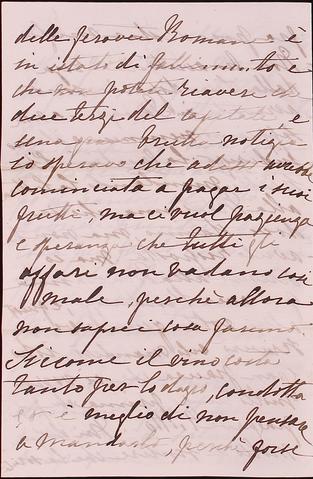 delle ferovie Romane è
in istato di fallimento e
che non potrò riavere che
due terzi del capitale, è
una gran brutta notizia
io sperava che adesso avrebbe
cominciata a pagar i suoi
frutti, ma ci vuol pazienza
e speranza che tutti gli
affari non vadano così
male, perchè allora
non saprei cosa faremo.
Siccome il vino costa
tanto per lo dazio, condotta
è meglio di non pensare
a mandarlo, perchè forse